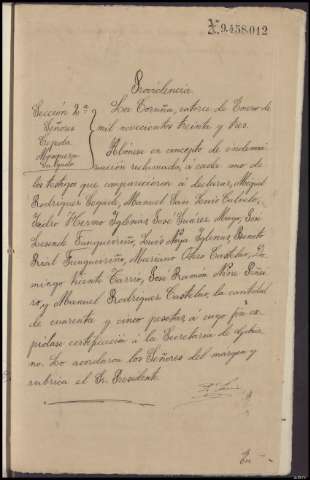 9.458.012
Providencia
Sección 2ª
Señores
Cepeda
La Coruña, catorce de Enero de
mil novecientos treinta y tres.
Abónese en concepto de indemni-
zación reclamada, á cada uno de
los testigos que comparecieron á declarar, Miguel
Rodríguez Manuel San Luis
Isidro Hermo Iglesias José Suárez Mayo, José
Resende Funqueiriño, Luis Noya Iglesias, Benito
Real Funqueiriño, Mariano Otero Castelao, Do-
mingo Vicente José Ramón Nine
y Manuel Rodríguez Castelao, la cantidad
de cuarenta y cinco pesetas á cuyo fin ex-
pídase certificación á la Secretaría de
no. Lo acordaron los Señores del margen y
rubrica el Sr. Presidente.